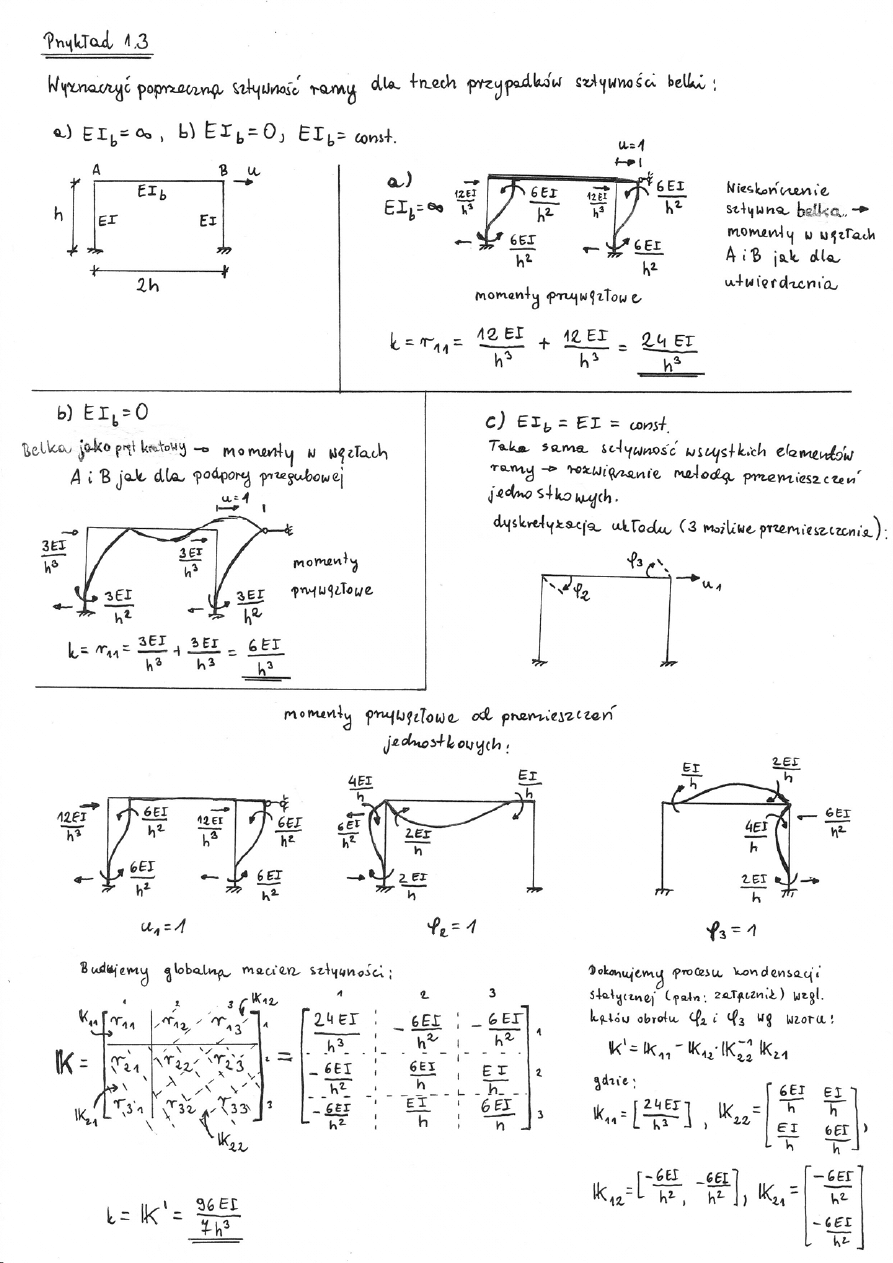 Przykład 1.3
Wyznaczyć poprzeczną sztywność ramy dla trzech przypadków sztywności belki:
a) EI_b = ∞, b) EI_b = 0, EI_b = const.
A B u
EI_b
h EI EI
2h
a)
EI_b = ∞
u=1
12EI/h³ 6EI/h² 12EI/h³ 6EI/h²
6EI/h² 6EI/h²
momenty przywęzłowe
Nieskończenie
sztywna belka →
momenty w węzłach
A i B jak dla
utwierdzenia
k = r₁₁ = 12EI/h³ + 12EI/h³ = 24EI/h³
b) EI_b = 0
Belka jako pręt kratowy → momenty w węzłach
A i B jak dla podpory przegubowej
u=1
3EI/h³ 3EI/h³
3EI/h² 3EI/h²
momenty
przywęzłowe
k = r₁₁ = 3EI/h³ + 3EI/h³ = 6EI/h³
c) EI_b = EI = const.
Taka sama sztywność wszystkich elementów
ramy → rozwiązanie metodą przemieszczeń
jednostkowych.
dyskretyzacja układu (3 możliwe przemieszczenia):
φ₂ φ₃ u₁
momenty przywęzłowe od przemieszczeń
jednostkowych:
12EI/h³ 6EI/h² 12EI/h³ 6EI/h²
6EI/h² 6EI/h²
u₁ = 1
4EI/h EI/h
6EI/h² 2EI/h
2EI/h
φ₂ = 1
EI/h 2EI/h
4EI/h 6EI/h²
2EI/h
φ₃ = 1
Budujemy globalną macierz sztywności:
1 2 3
K₁₁ K₁₂
r₁₁ r₁₂ r₁₃ 1
K = r₂₁ r₂₂ r₂₃ 2
r₃₁ r₃₂ r₃₃ 3
K₂₁ K₂₂
=
1 2 3
24EI/h³ -6EI/h² -6EI/h² 1
-6EI/h² 6EI/h EI/h 2
-6EI/h² EI/h 6EI/h 3
k = K' = 96EI/7h³
Dokonujemy procesu kondensacji
statycznej (patrz: załącznik) wzgl.
kątów obrotu φ₂ i φ₃ wg wzoru:
K' = K₁₁ - K₁₂·K₂₂⁻¹ K₂₁
gdzie:
K₁₁ = [24EI/h³], K₂₂ = [6EI/h EI/h
EI/h 6EI/h],
K₁₂ = [-6EI/h², -6EI/h²], K₂₁ = [-6EI/h²
-6EI/h²]